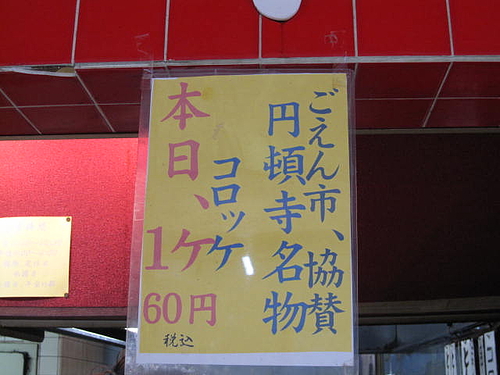 ごえん市、協賛
円頓寺名物
コロッケ
本日、1ケ
60円
税込